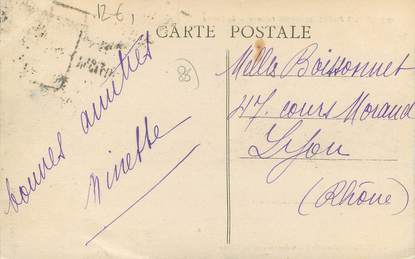 12€,
CARTE POSTALE
85
bonnes amitiés
Ninette
Melles Boissonnet
47. cours Morand
Lyon
(Rhône)